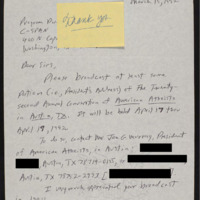 March 15, 1992
Program
C-SPAN
400 N. Cap
Washington,
Thank you
Dear Sirs,
Please broadcast at least some
portion (i.e., President's Address) of the Twenty-
second Annual Convention of American Atheists
in Austin, TX. It will be held April 17 thru
April 19, 1992.
To do so, contact Jon G. Murray, President
of American Atheists, in Austin:
Austin, TX 78714-
Austin, TX 78752-
I very much appreciated your broadcast